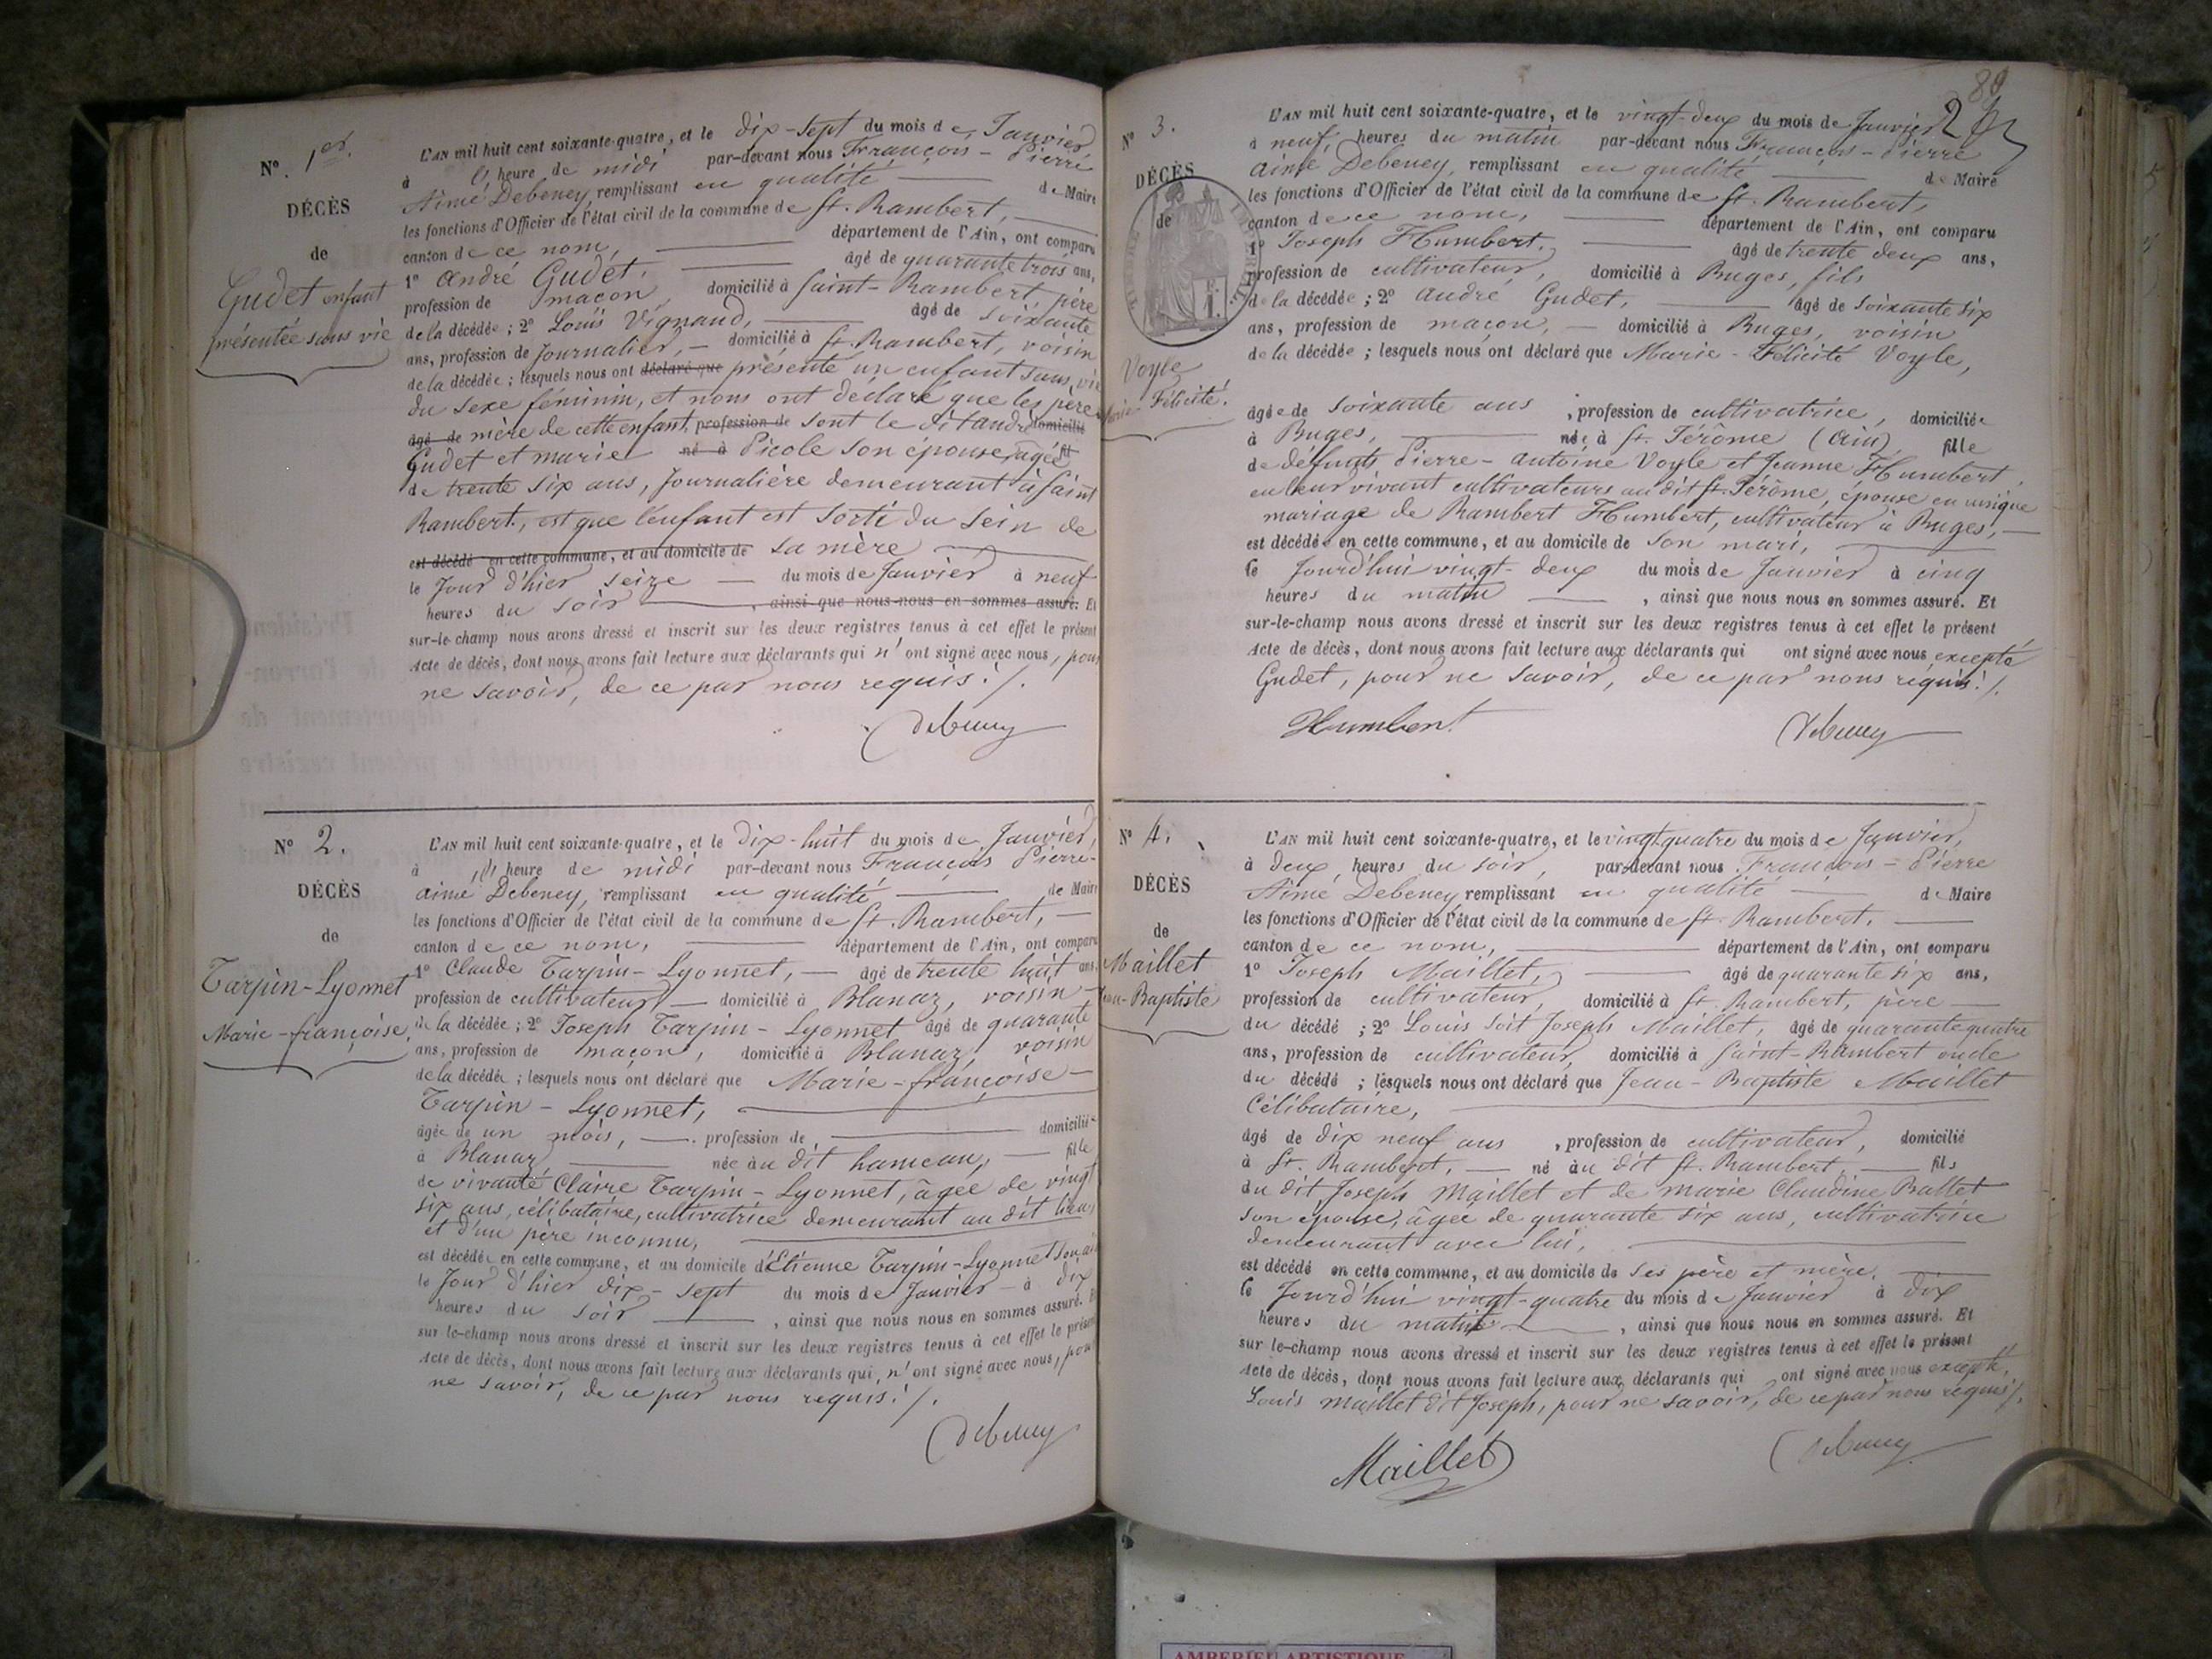 N° 1er.
DÉCÈS
de
Gudet enfant
présentée sans vie
L'AN mil huit cent soixante-quatre, et le dix-sept du mois de Janvier
à heure de midi par-devant nous François-Pierre
Aimé Debeney, remplissant en qualité de Maire
les fonctions d'Officier de l'état civil de la commune de St. Rambert,
canton de ce nom, département de l'Ain, ont comparu
1° André Gudet, âgé de quarante trois ans,
profession de maçon, domicilié à Saint-Rambert, père
de la décédée ; 2° Louis Vignand, âgé de soixante
ans, profession de Journalier, domicilié à St. Rambert, voisin
de la décédée ; lesquels nous ont déclaré que présenté un enfant sans vie
du sexe féminin, et nous ont déclaré que les père
âgé de mère de cette enfant, profession de sont le dit André domicilié
Gudet et marie né à Picole son épouse, âgée
de trente six ans, Journalière demeurant à Saint
Rambert, est que l'enfant est sorti du sein de
est décédé en cette commune, et au domicile de sa mère
le Jour d'hier seize du mois de Janvier à neuf
heures du soir, ainsi que nous nous en sommes assuré. Et
sur-le-champ nous avons dressé et inscrit sur les deux registres tenus à cet effet le présent
Acte de décès, dont nous avons fait lecture aux déclarants qui n'ont signé avec nous, pour
ne savoir, de ce par nous requis. /.
Debeney
N° 2.
DÉCÈS
de
Tarpin-Lyonnet
Marie-françoise.
L'AN mil huit cent soixante-quatre, et le dix-huit du mois de Janvier,
à heure de midi par-devant nous François Pierre-
aimé Debeney, remplissant en qualité de Maire
les fonctions d'Officier de l'état civil de la commune de St. Rambert,
canton de ce nom, département de l'Ain, ont comparu
1° Claude Tarpin-Lyonnet, âgé de trente huit ans,
profession de cultivateur, domicilié à Blanaz, voisin
de la décédée ; 2° Joseph Tarpin-Lyonnet âgé de quarante
ans, profession de maçon, domicilié à Blanaz, voisin
de la décédée ; lesquels nous ont déclaré que Marie-françoise-
Tarpin-Lyonnet,
âgée de un mois, profession de domiciliée
à Blanaz née au dit hameau, fille
de vivante Claire Tarpin-Lyonnet, âgée de vingt
six ans, célibataire, cultivatrice demeurant au dit lieu,
et d'un père inconnu,
est décédée en cette commune, et au domicile d'Etienne Tarpin-Lyonnet son
le Jour d'hier dix-sept du mois de Janvier à dix
heures du soir, ainsi que nous nous en sommes assuré.
sur le-champ nous avons dressé et inscrit sur les deux registres tenus à cet effet le présent
Acte de décès, dont nous avons fait lecture aux déclarants qui, n'ont signé avec nous, pour
ne savoir, de ce par nous requis. /.
Debeney
N° 3.
DÉCÈS
de
Voyle
Marie Félicité.
L'AN mil huit cent soixante-quatre, et le vingt-deux du mois de Janvier
à neuf heures du matin par-devant nous François-Pierre
Aimé Debeney, remplissant en qualité de Maire
les fonctions d'Officier de l'état civil de la commune de St. Rambert,
canton de ce nom, département de l'Ain, ont comparu
1° Joseph Humbert, âgé de trente deux ans,
profession de cultivateur, domicilié à Buges, fils
de la décédée ; 2° André Gudet, âgé de soixante six
ans, profession de maçon, domicilié à Buges, voisin
de la décédée ; lesquels nous ont déclaré que Marie-Félicité Voyle,
âgée de soixante ans, profession de cultivatrice, domiciliée
à Buges, née à St. Jérôme (Ain) fille
de défunts Pierre-Antoine Voyle et Jeanne Humbert,
en leur vivant cultivateurs au dit St. Jérôme, épouse en unique
mariage de Rambert Humbert, cultivateur à Buges,
est décédée en cette commune, et au domicile de son mari,
le Jourd'hui vingt-deux du mois de Janvier à cinq
heures du matin, ainsi que nous nous en sommes assuré. Et
sur-le-champ nous avons dressé et inscrit sur les deux registres tenus à cet effet le présent
Acte de décès, dont nous avons fait lecture aux déclarants qui ont signé avec nous excepté
Gudet, pour ne savoir, de ce par nous requis. /.
Humbert
Debeney
N° 4.
DÉCÈS
de
Maillet
Jean-Baptiste
L'AN mil huit cent soixante-quatre, et le vingt quatre du mois de Janvier,
à deux heures du soir, par-devant nous François-Pierre
Aimé Debeney, remplissant en qualité de Maire
les fonctions d'Officier de l'état civil de la commune de St. Rambert,
canton de ce nom, département de l'Ain, ont comparu
1° Joseph Maillet, âgé de quarante six ans,
profession de cultivateur, domicilié à St. Rambert, père
du décédé ; 2° Louis soit Joseph Maillet, âgé de quarante quatre
ans, profession de cultivateur, domicilié à Saint-Rambert oncle
du décédé ; lesquels nous ont déclaré que Jean-Baptiste Maillet
Célibataire,
âgé de dix neuf ans, profession de cultivateur, domicilié
à St. Rambert, né au dit St. Rambert, fils
du dit Joseph Maillet et de marie Claudine Ballet
son épouse, âgée de quarante six ans, cultivatrice
demeurant avec lui,
est décédé en cette commune, et au domicile de ses père et mère.
le Jourd'hui vingt-quatre du mois de Janvier à dix
heures du matin, ainsi que nous nous en sommes assuré. Et
sur le-champ nous avons dressé et inscrit sur les deux registres tenus à cet effet le présent
Acte de décès, dont nous avons fait lecture aux déclarants qui ont signé avec nous excepté,
Louis Maillet dit Joseph, pour ne savoir, de ce par nous requis /.
Maillet
Debeney
AMBERIEU ARTISTIQUE